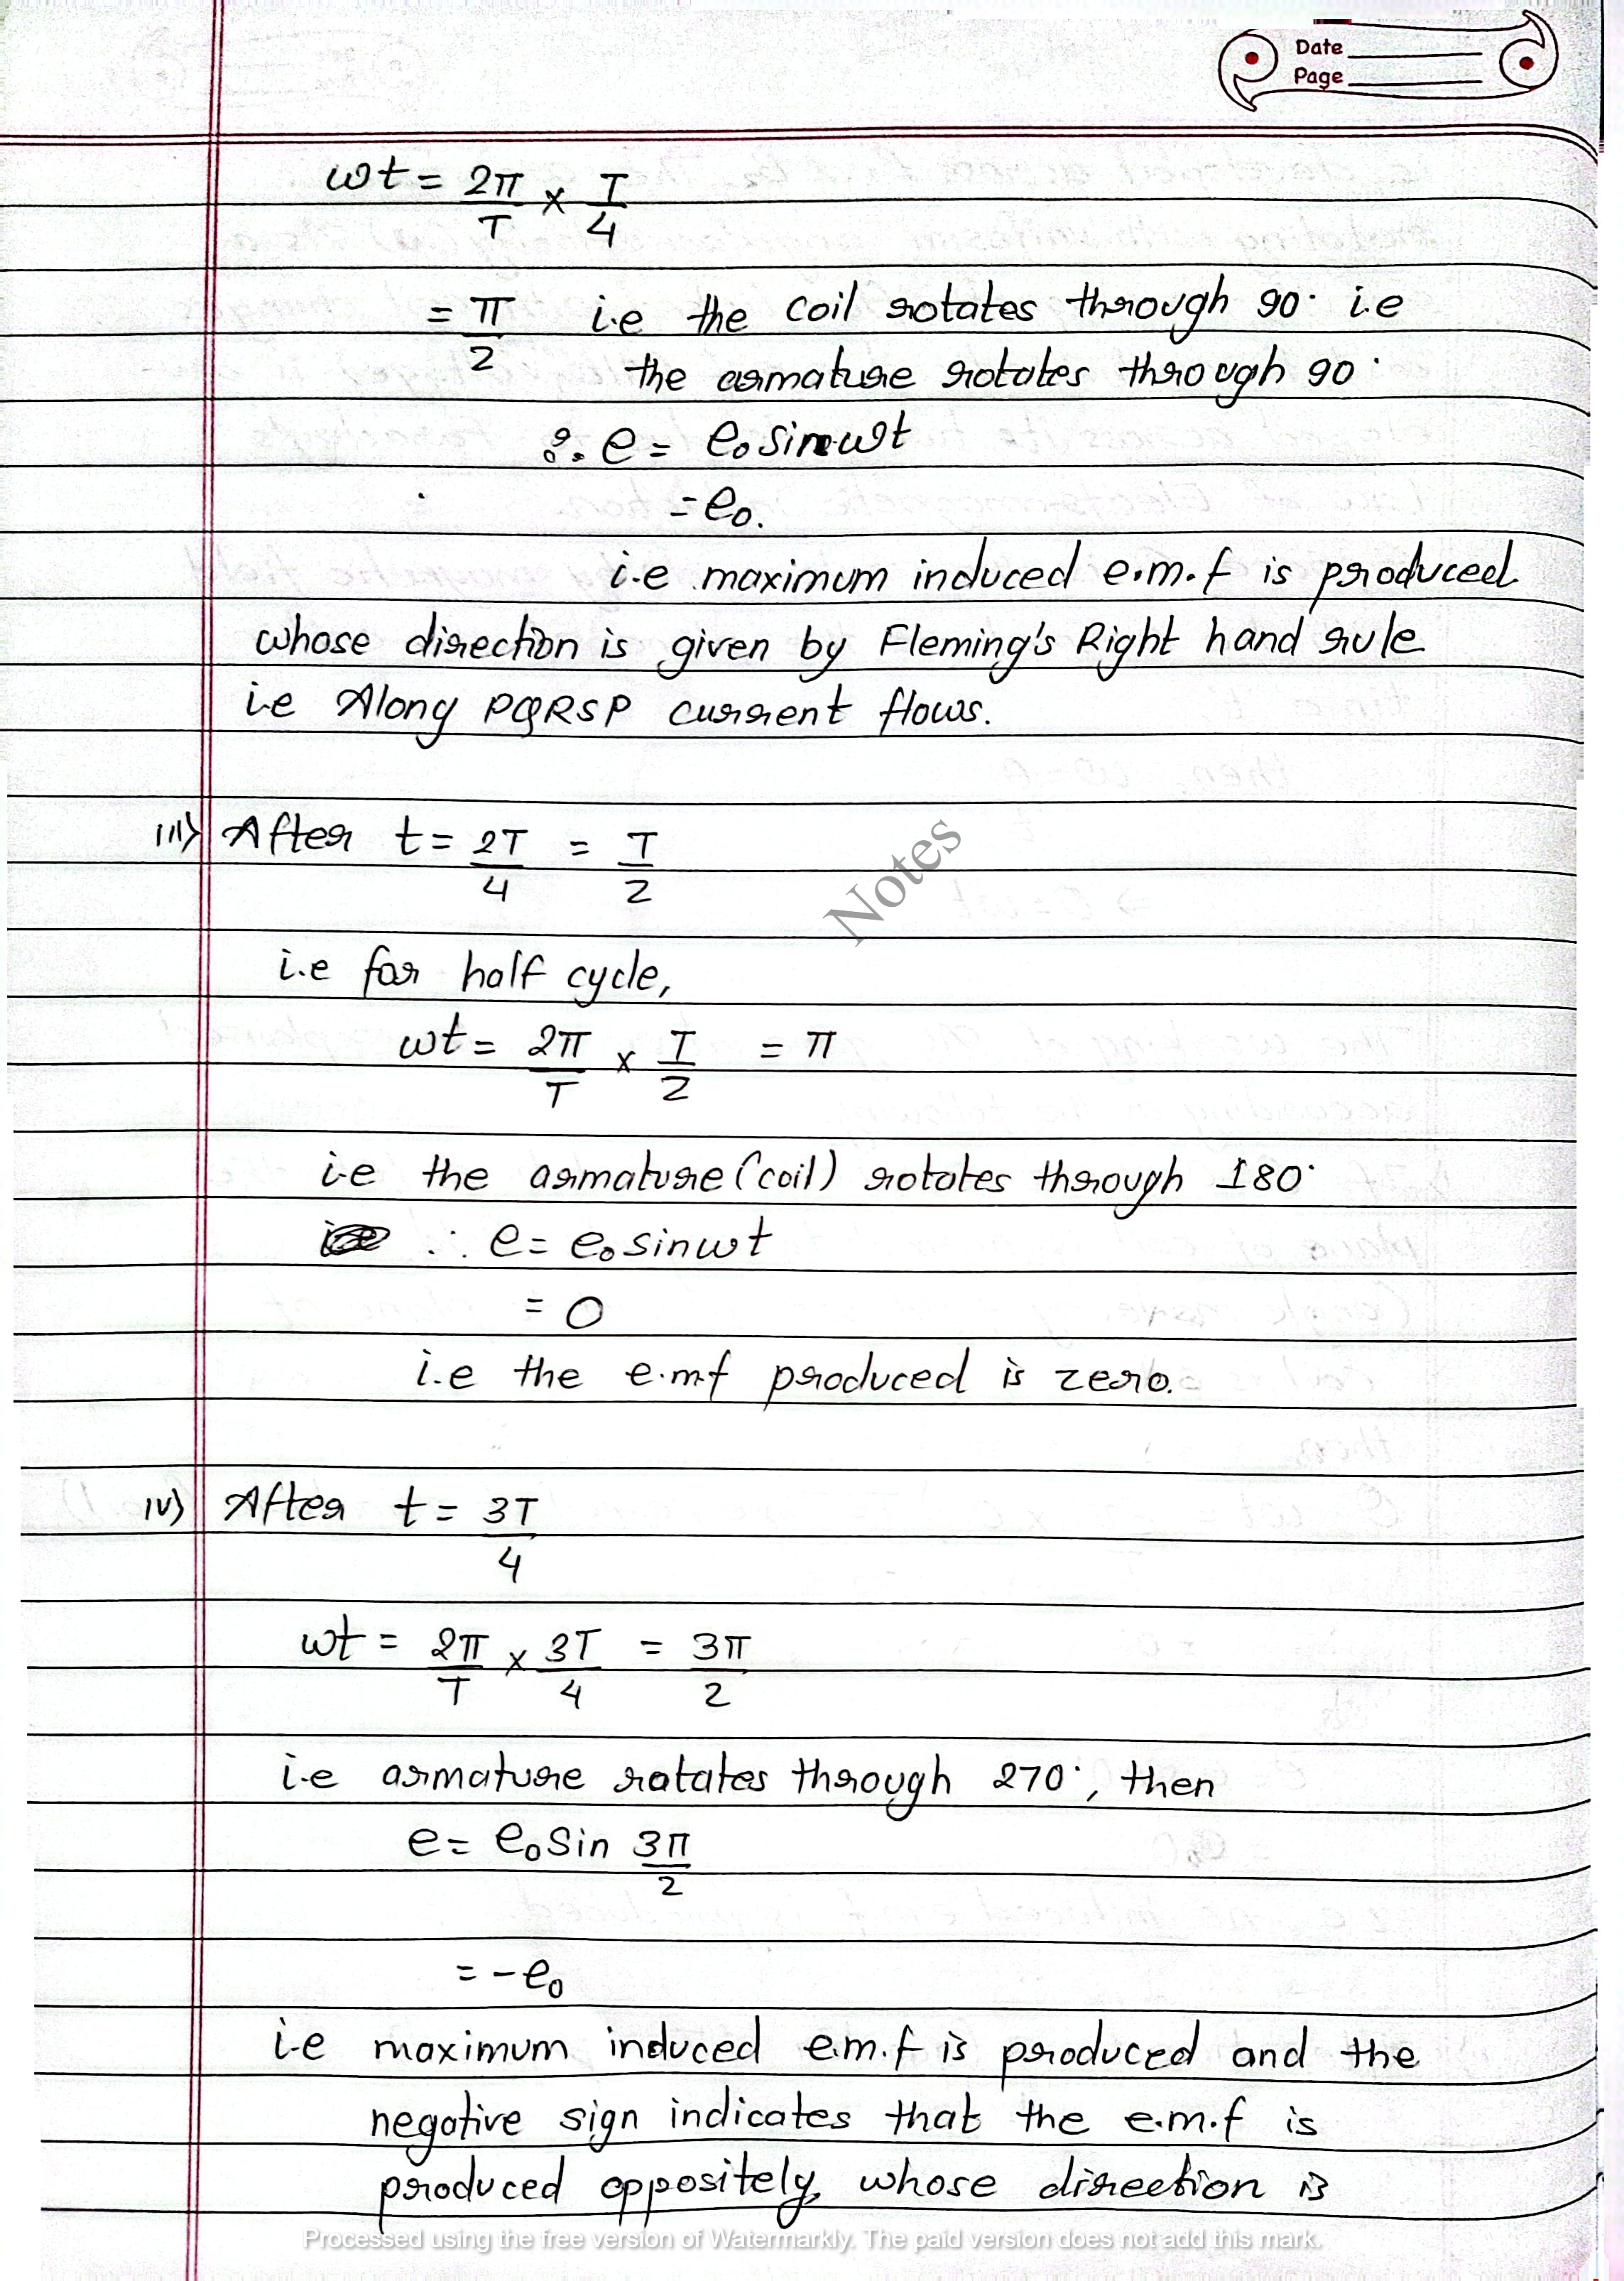 Date
Page
ωt = 2π/T × T/4
= π/2 i.e the coil rotates through 90° i.e
the armature rotates through 90°
∴ e = e₀ sinωt
= e₀.
i.e maximum induced e.m.f is produced
whose direction is given by Fleming's Right hand rule
i.e Along PQRSP current flows.
iii) After t = 2T/4 = T/2
Notes
i.e for half cycle,
ωt = 2π/T × T/2 = π
i.e the armature (coil) rotates through 180°
∴ e = e₀ sinωt
= 0
i.e the e.mf produced is zero.
iv) After t = 3T/4
ωt = 2π/T × 3T/4 = 3π/2
i.e armature rotates through 270°, then
e = e₀ Sin 3π/2
= -e₀
i.e maximum induced e.m.f is produced and the
negative sign indicates that the e.m.f is
produced oppositely, whose direction is
Processed using the free version of Watermarkly. The paid version does not add this mark.